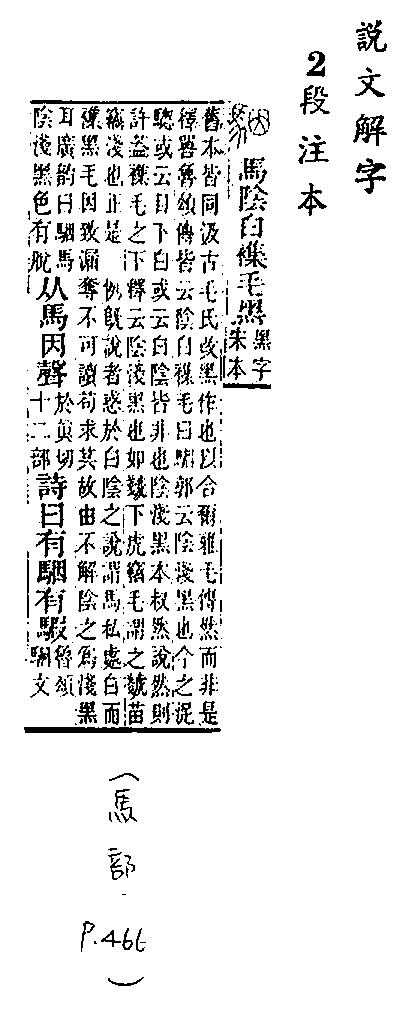 說文解字
2段注本
馬陰白襍毛黑
黑字
朱本
舊本皆同汲古毛氏改黑作也以合爾雅毛傳然而非是
釋嘼魯頌傳皆云陰白襍毛曰駰郭云陰淺黑也今之泥
驄或云目下白或云白陰皆非也陰淺黑本叔然說然則
許葢襍毛之下釋云陰淺黑也如虦下虎竊毛謂之虦苗
竊淺也正是例旣說者惑於白陰之說謂馬私處白而
襍黑毛因致漏奪不可讀苟求其故由不解陰之爲淺黑
耳廣韵曰駰馬
陰淺黑色有脫
从馬因聲
於眞切
十二部
詩曰有駰有騢
魯頌
駉文
(馬部.P.466)